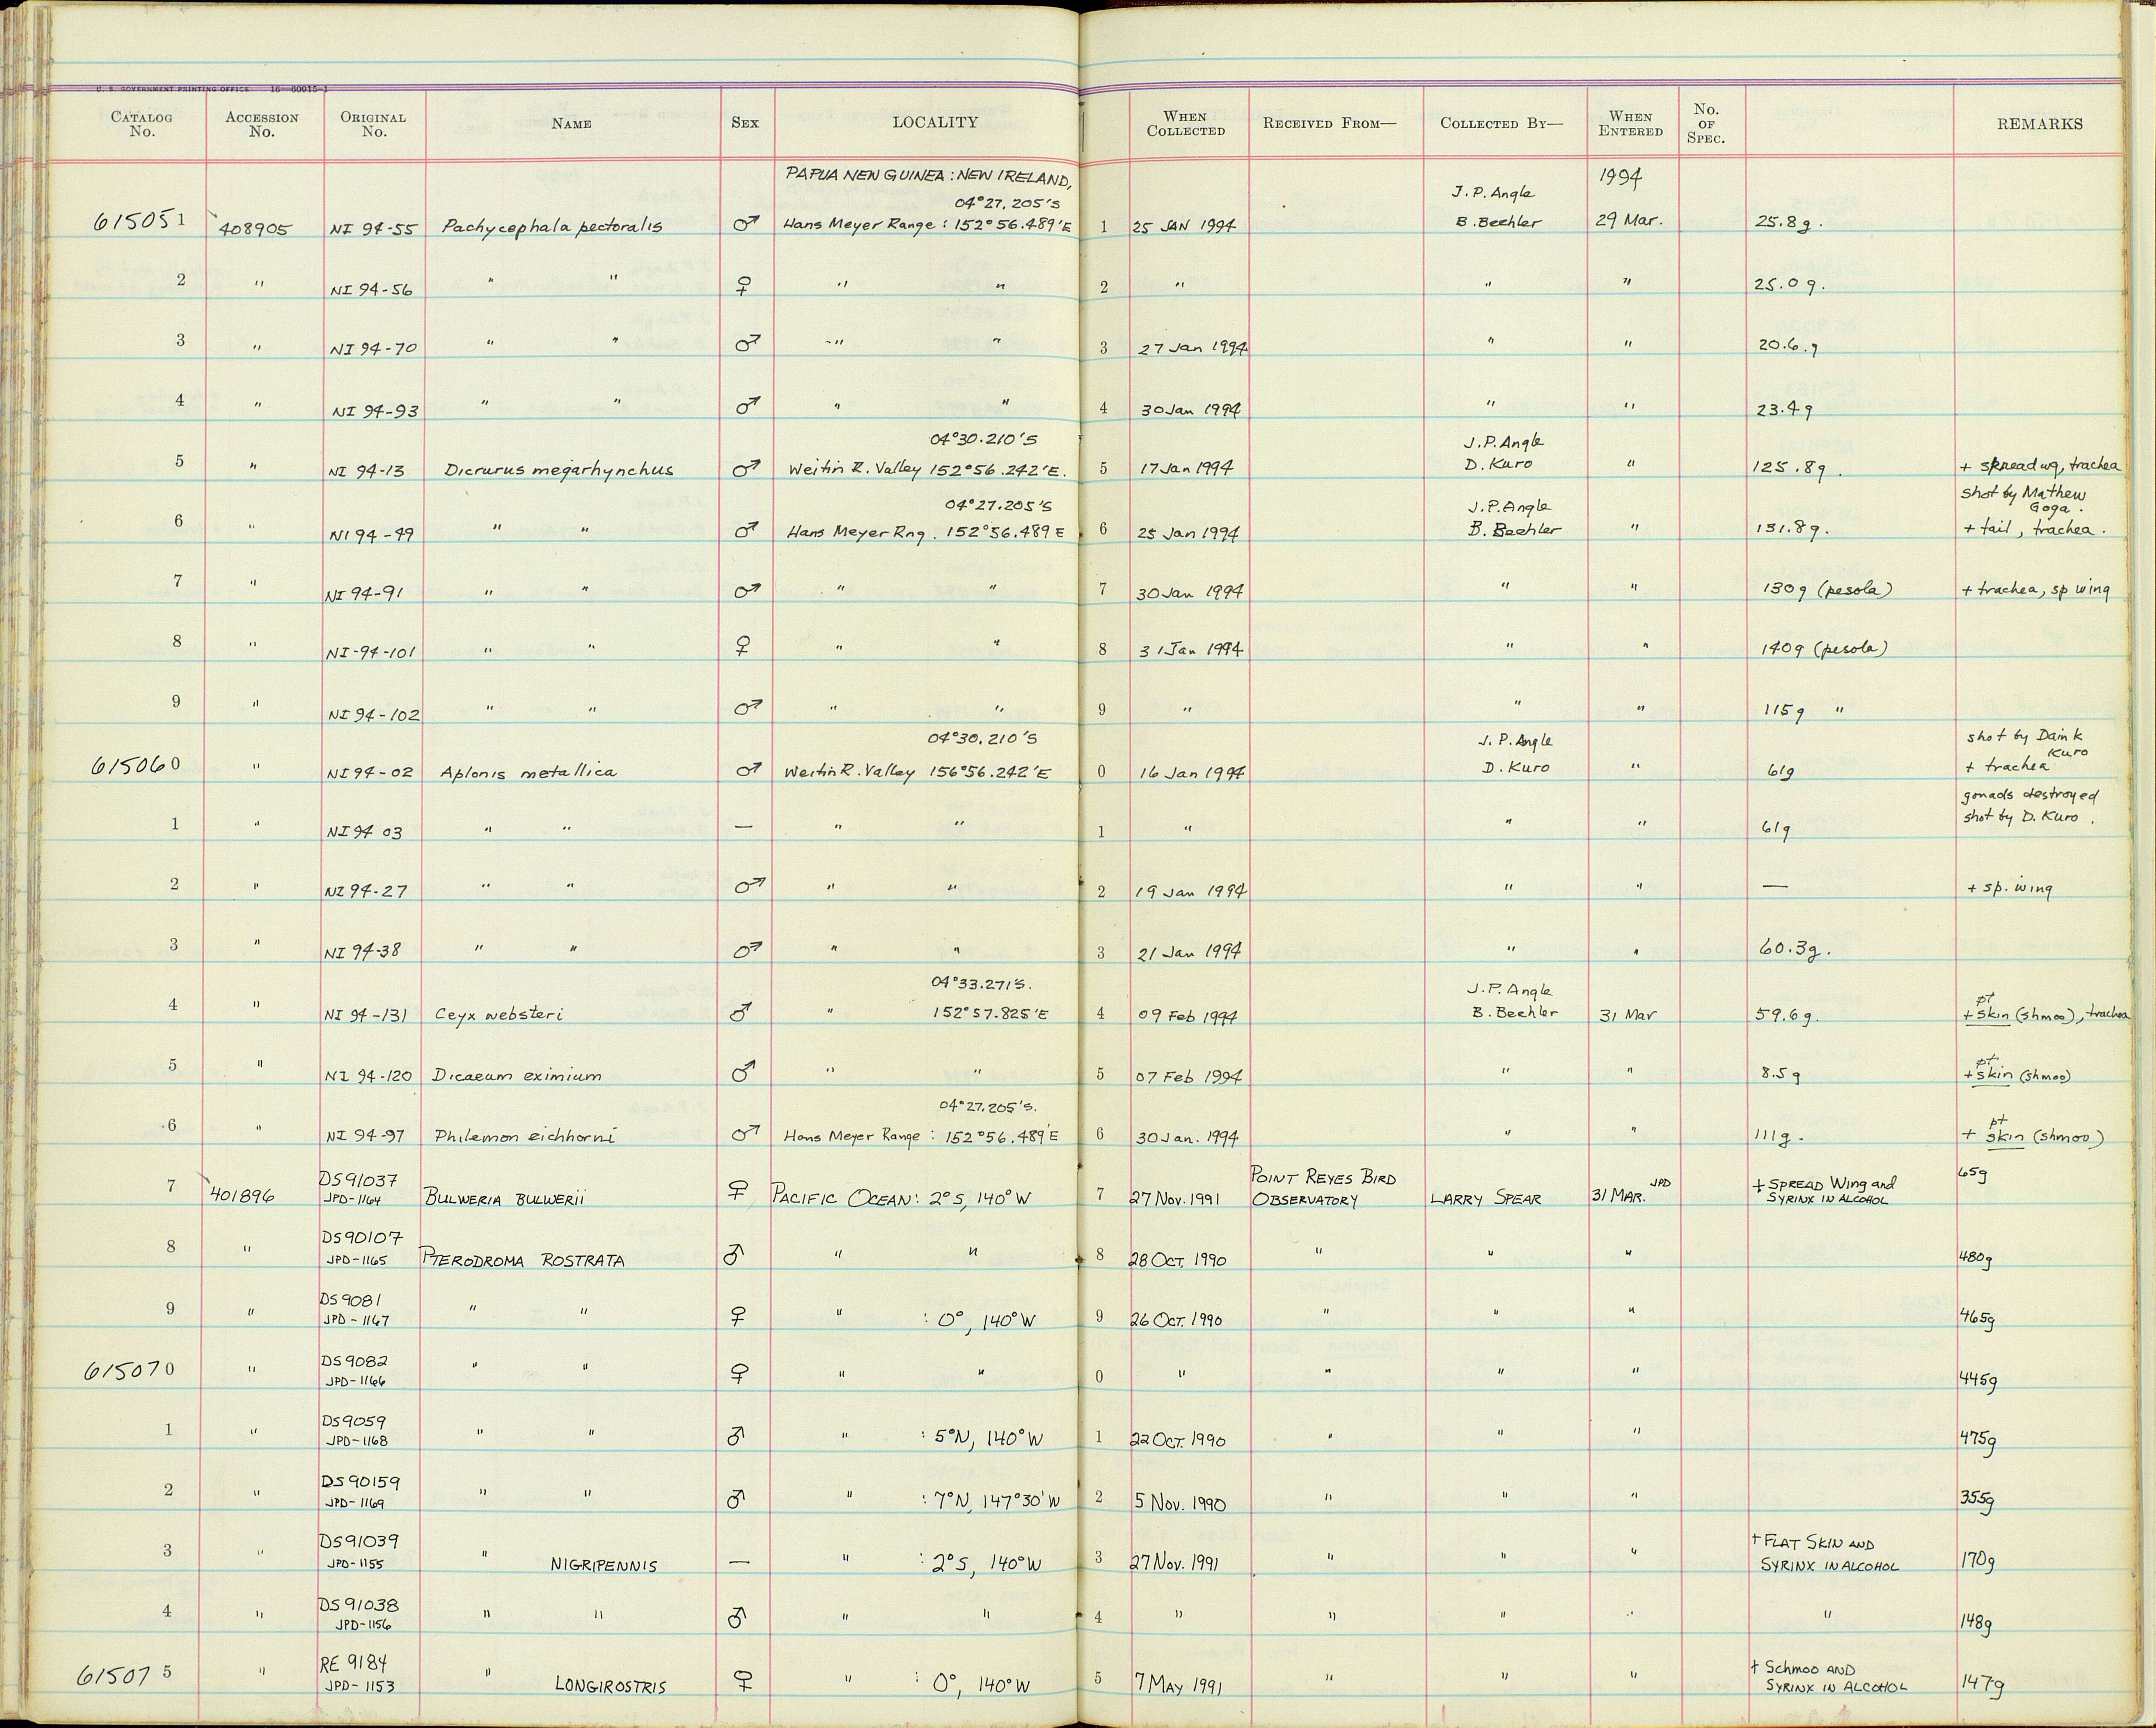 U. S. GOVERNMENT PRINTING OFFICE 16—60915-1
CATALOG No. ACCESSION No. ORIGINAL No. NAME SEX LOCALITY WHEN COLLECTED RECEIVED FROM— COLLECTED BY— WHEN ENTERED No. OF SPEC. REMARKS
PAPUA NEW GUINEA : NEW IRELAND, 1994
04°27.205'S J.P. Angle
615051 408905 NI 94-55 Pachycephala pectoralis ♂ Hans Meyer Range : 152°56.489'E 1 25 JAN 1994 B. Beehler 29 Mar. 25.8g.
2 " NI 94-56 " " ♀ " " 2 " " " 25.0g.
3 " NI 94-70 " " ♂ " " 3 27 Jan 1994 " " 20.6.g
4 " NI 94-93 " " ♂ " " 4 30 Jan 1994 " " 23.4g
04°30.210'S J.P. Angle
5 " NI 94-13 Dicrurus megarhynchus ♂ Weitin R. Valley 152°56.242'E. 5 17 Jan 1994 D. Kuro " 125.8g. + spread wg, trachea
04°27.205'S J.P. Angle shot by Mathew Goga.
6 " NI 94-49 " " ♂ Hans Meyer Rng. 152°56.489 E 6 25 Jan 1994 B. Beehler " 131.8g. + tail, trachea.
7 " NI 94-91 " " ♂ " " 7 30 Jan 1994 " " 130g (pesola) + trachea, sp wing
8 " NI-94-101 " " ♀ " " 8 31 Jan 1994 " " 140g (pesola)
9 " NI 94-102 " " ♂ " " 9 " " " 115g "
04°30.210'S J.P. Angle shot by Daink Kuro
615060 " NI 94-02 Aplonis metallica ♂ Weitin R. Valley 156°56.242'E 0 16 Jan 1994 D. Kuro " 61g + trachea
gonads destroyed
1 " NI 94 03 " " — " " 1 " " " 61g shot by D. Kuro.
2 " NI 94-27 " " ♂ " " 2 19 Jan 1994 " " — + sp. wing
3 " NI 94-38 " " ♂ " " 3 21 Jan 1994 " " 60.3g.
04°33.271'S. J.P. Angle pt
4 " NI 94-131 Ceyx websteri ♂ " 152°57.825'E 4 09 Feb 1994 B. Beehler 31 Mar 59.6g. + skin (shmoo), trachea
pt
5 " NI 94-120 Dicaeum eximium ♂ " " 5 07 Feb 1994 " " 8.5g + skin (shmoo)
04°27.205'S. pt
6 " NI 94-97 Philemon eichhorni ♂ Hans Meyer Range : 152°56.489'E 6 30 Jan. 1994 " " 111g. + skin (shmoo)
DS91037 POINT REYES BIRD JPD + SPREAD WING and 65g
7 401896 JPD-1164 BULWERIA BULWERII ♀ PACIFIC OCEAN: 2°S, 140°W 7 27 Nov. 1991 OBSERVATORY LARRY SPEAR 31 MAR. SYRINX IN ALCOHOL
DS90107
8 " JPD-1165 PTERODROMA ROSTRATA ♂ " " 8 28 Oct. 1990 " " " 480g
DS9081
9 " JPD-1167 " " ♀ " : 0°, 140°W 9 26 Oct. 1990 " " " 465g
DS9082
615070 " JPD-1166 " " ♀ " " 0 " " " " 445g
DS9059
1 " JPD-1168 " " ♂ " : 5°N, 140°W 1 22 Oct. 1990 " " " 475g
DS90159
2 " JPD-1169 " " ♂ " : 7°N, 147°30'W 2 5 Nov. 1990 " " " 355g
DS91039 + FLAT SKIN AND
3 " JPD-1155 " NIGRIPENNIS — " : 2°S, 140°W 3 27 Nov. 1991 " " " SYRINX IN ALCOHOL 170g
DS91038
4 " JPD-1156 " " ♂ " " 4 " " " " " 148g
RE 9184 + Schmoo AND
615075 " JPD-1153 " LONGIROSTRIS ♀ " : 0°, 140°W 5 7 MAY 1991 " " " SYRINX IN ALCOHOL 147g